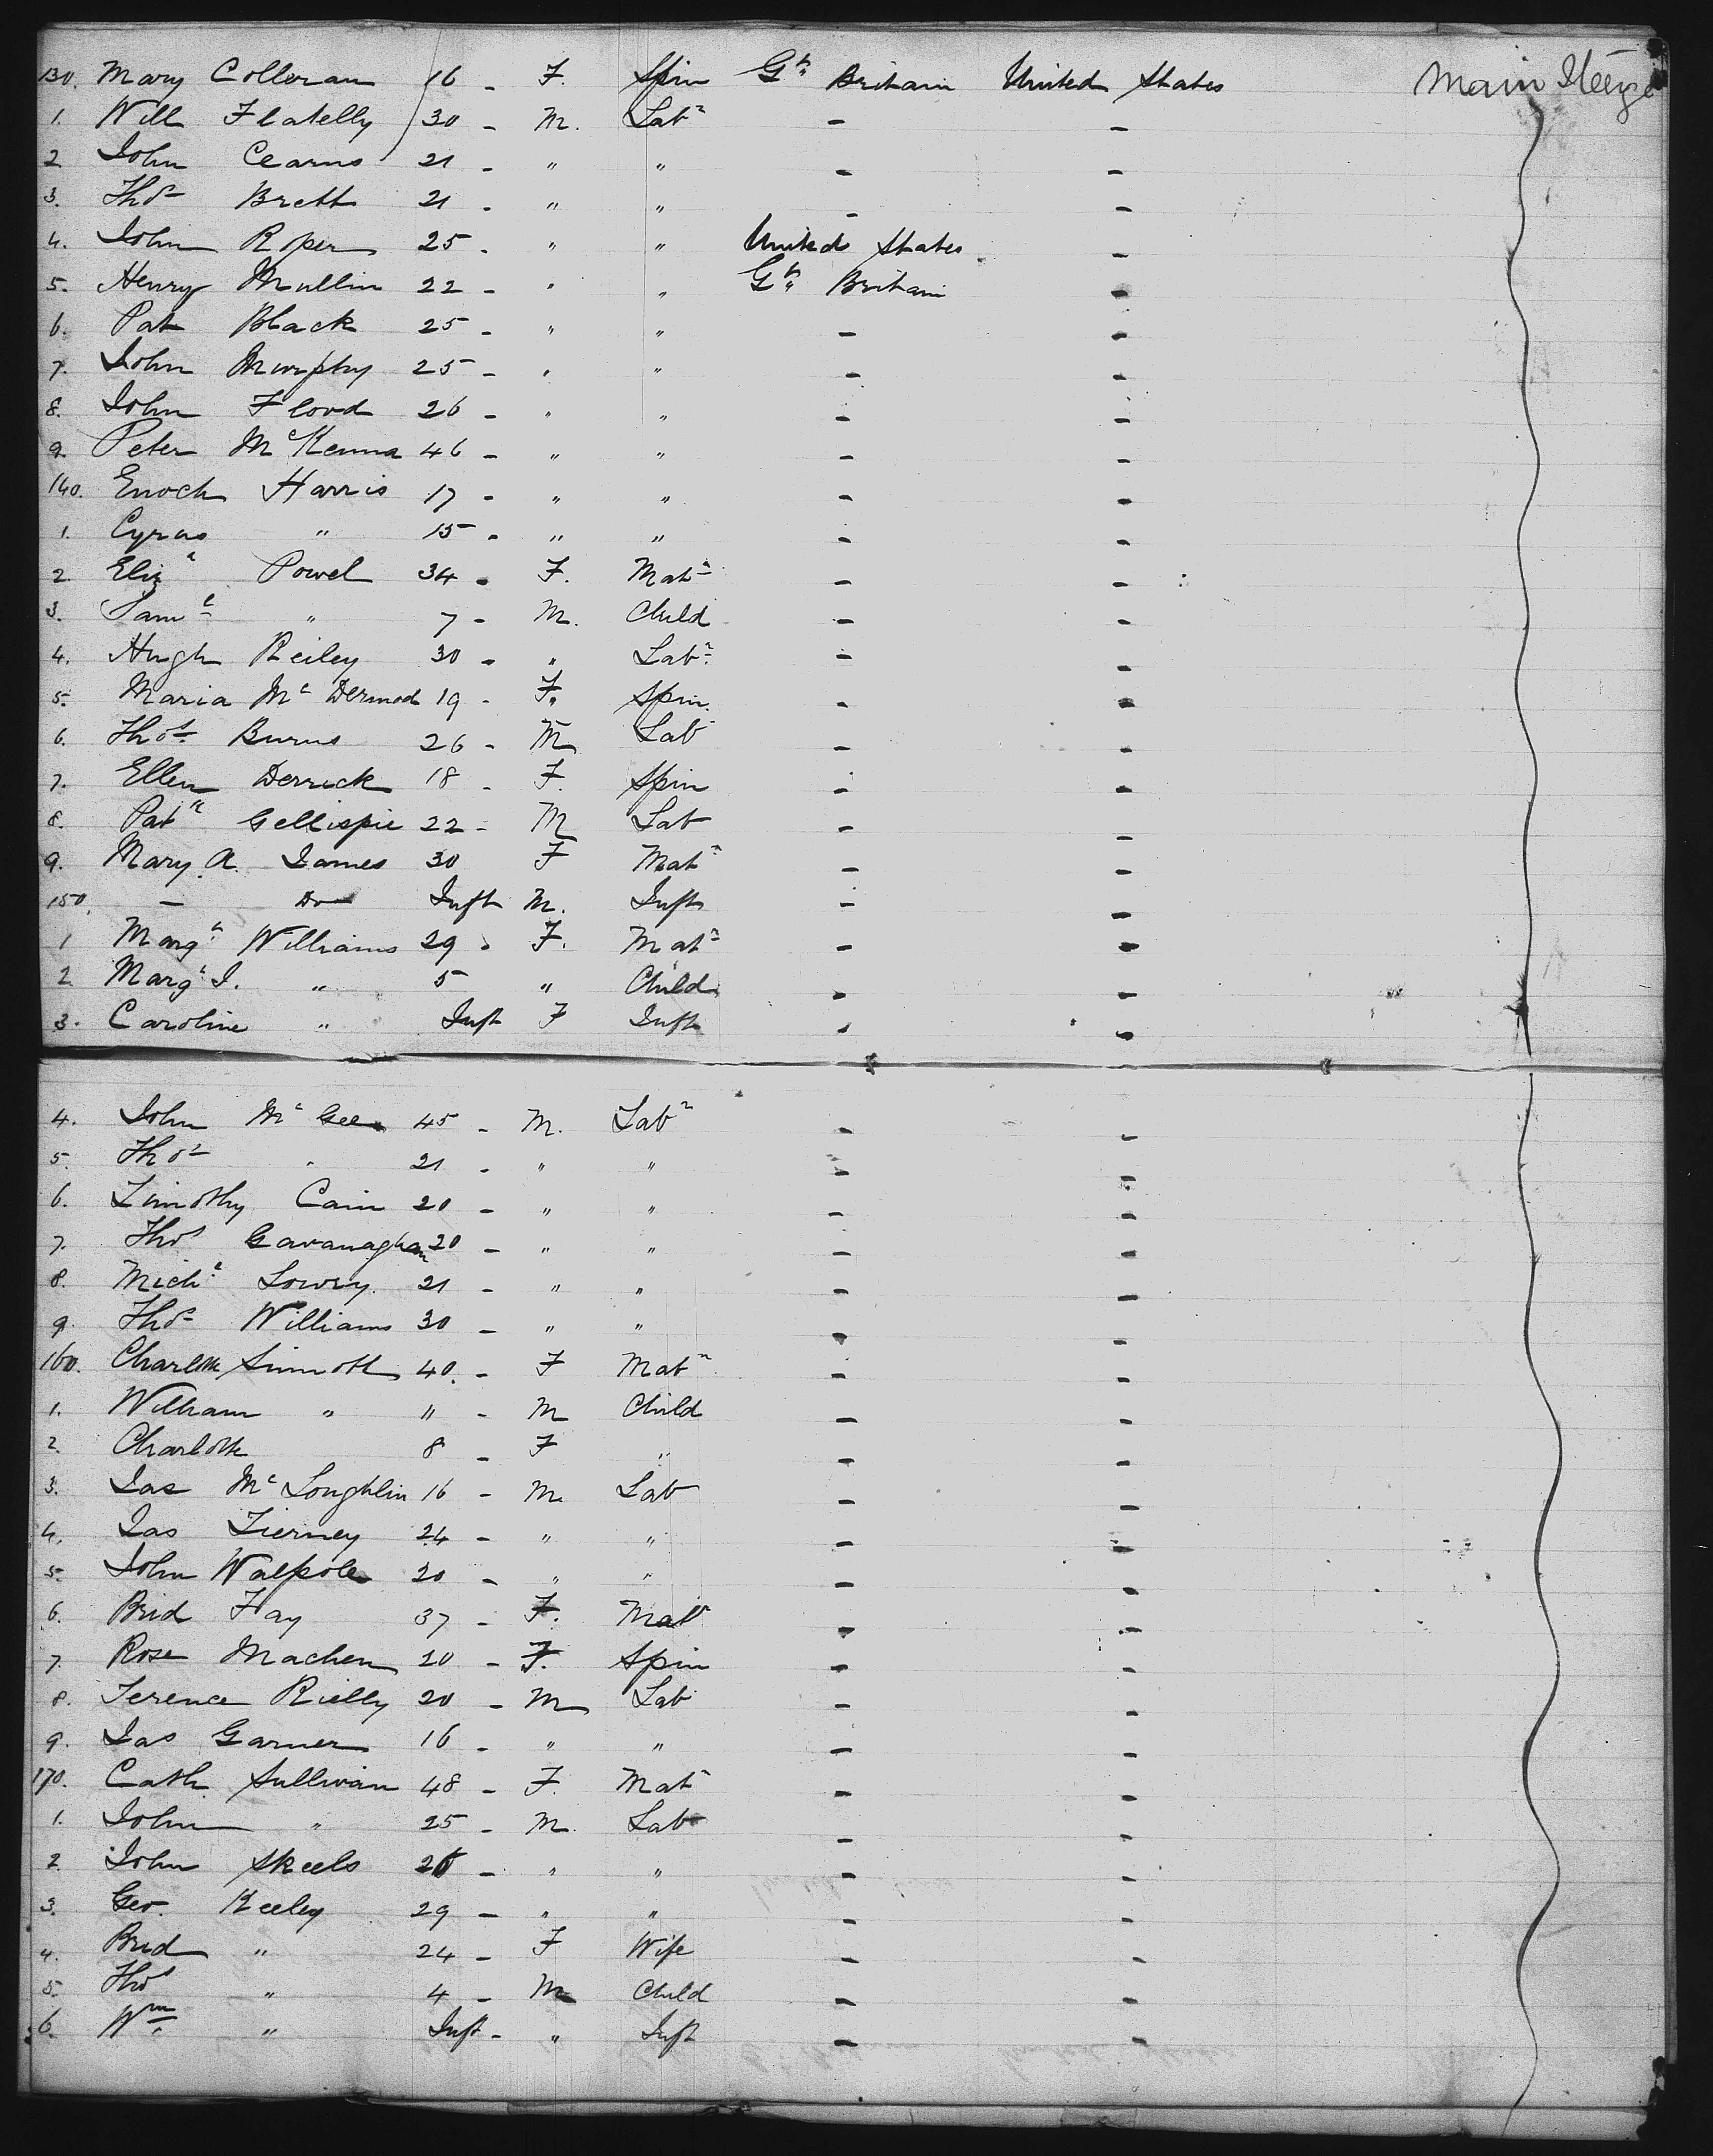 130. Mary Colleran 16 - F. Spin Gt. Britain United States Main Steerge
1. Will Flatelly 30 - M. Labr - -
2 John Cearns 21 - " " - -
3. Thos Brett 21 - " " - -
4. John Roper 25 - " " United States -
5. Henry Mullin 22 - " " Gt. Britain -
6. Pat Black 25 - " " - -
7. John Murphy 25 - " " - -
8. John Flood 26 - " " - -
9. Peter McKenna 46 - " " - -
140. Enoch Harris 17 - " " - -
1. Cyrus " 15 - " " - -
2. Eliz Powel 34 - F. Matn - -
3. Saml " 7 - M. Child - -
4. Hugh Reiley 30 - " Labr. - -
5. Maria McDermod 19 - F. Spin. - -
6. Thos. Burns 26 - M Lab - -
7. Ellen Derrick 18 - F. Spin - -
8. Patk Gellispie 22 - M Lab - -
9. Mary. A. James 30 F Matn - -
150. - Do Inft M. Inft - -
1 Margt. Williams 29 - F. Matn - -
2 Margt. J. " 5 " Child - -
3. Caroline " Inft F Inft - -
4. John McGee 45 - M. Labr - -
5. Thos " 21 - " " - -
6. Timothy Cain 20 - " " - -
7. Thos Gavanaghan 20 - " " - -
8. Michl. Lowry. 21 - " " - -
9. Thos Williams 30 - " " - -
160. Charlotte Sinnott 40. - F Matn - -
1. William " " - M Child - -
2. Charlotte 8 - F " - -
3. Jas McLoughlin 16 - M Lab - -
4. Jas Tierney 24 - " " - -
5. John Walpole 20 - " " - -
6. Brid Fay 37 - F. Mat - -
7. Rose Machen 20 - F. Spin - -
8. Terence Rielly 20 - M Lab - -
9. Jas Garner 16 - " " - -
170. Cath. Sullivan 48 - F. Mat - -
1. John " 25 - M. Lab - -
2. John Skeels 26 - " " - -
3. Geo. Keeley 29 - " " - -
4. Brid " 24 - F Wife - -
5. Thos " 4 - M Child - -
6. Wm " Inft - " Inft - -